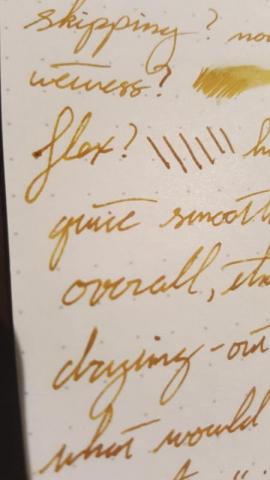 skipping? no
wetness?
flex?
quite smooth
overall, it
drying-out
what would